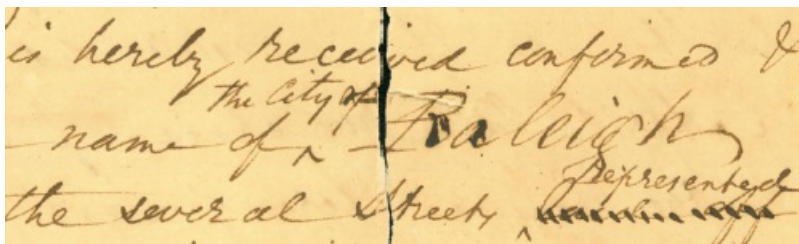 is hereby received confirmed &
the City of
name of Raleigh
represented
the several Streets